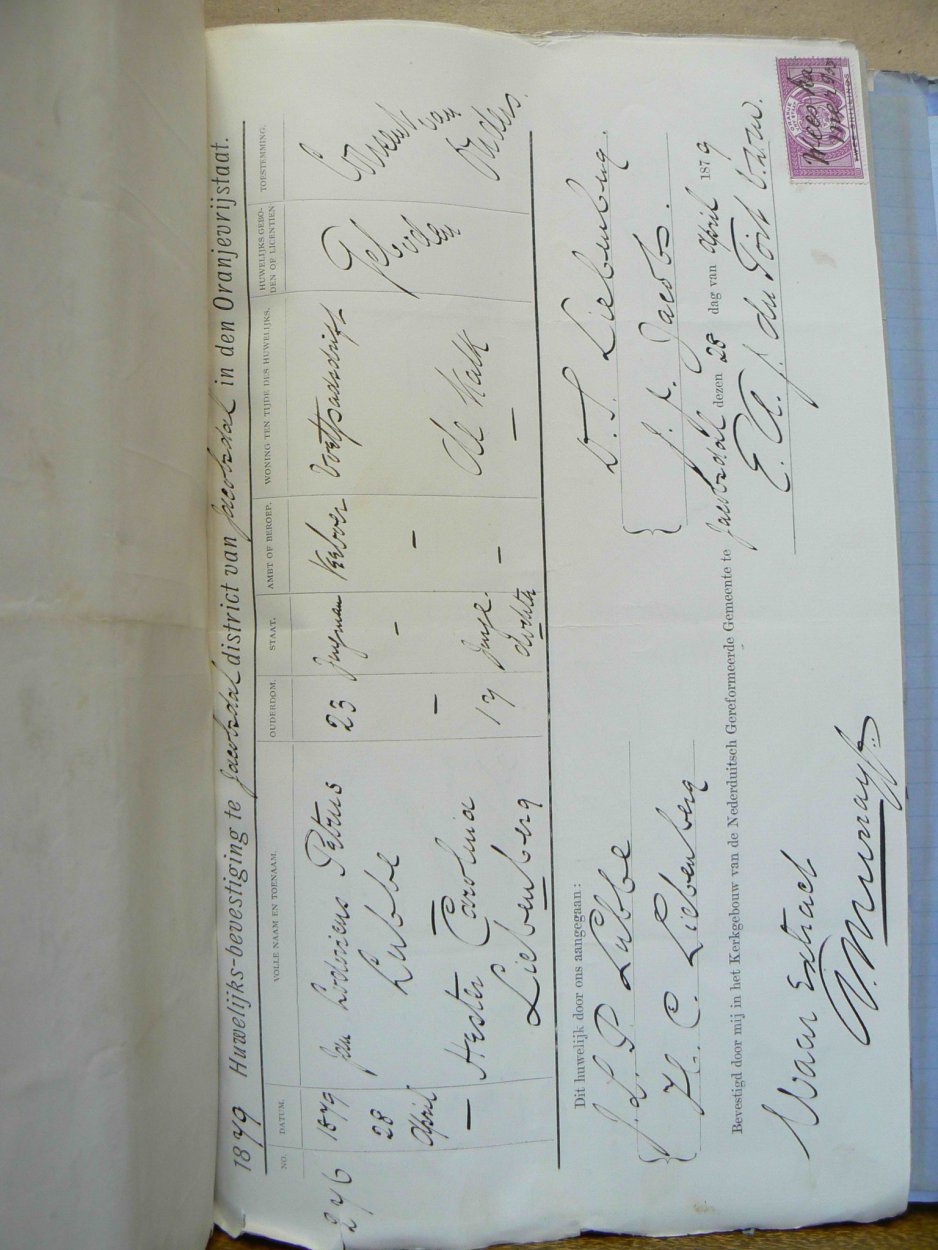 1879 Huwelijks-bevestiging te Jacobsdal district van Jacobsdal in den Oranjevrijstaat.
NO. DATUM. VOLLE NAAM EN TOENAAM. OUDERDOM. STAAT. AMBT OF BEROEP. WONING TEN TIJDE DES HUWELIJKS. HUWELIJKS GEBO- TOESTEMMING.
DEN OF LICENTIEN
246 1879 Jan Petrus 23 Jongman Veeboer
28 Lubbe
April
— Hester Carolina — — —
Liebenberg 17 Jonge — De Kalk
dochter —
Geboden
Ouders.
Dit huwelijk door ons aangegaan:
J. L. P. Lubbe
H. C. Liebenberg
D. S. Liebenberg
J. J. Jacobs.
Bevestigd door mij in het Kerkgebouw van de Nederduitsch Gereformeerde Gemeente te Jacobsdal dezen 28 dag van April 1879
E. A. J. du Toit
Waar Extract
Murray